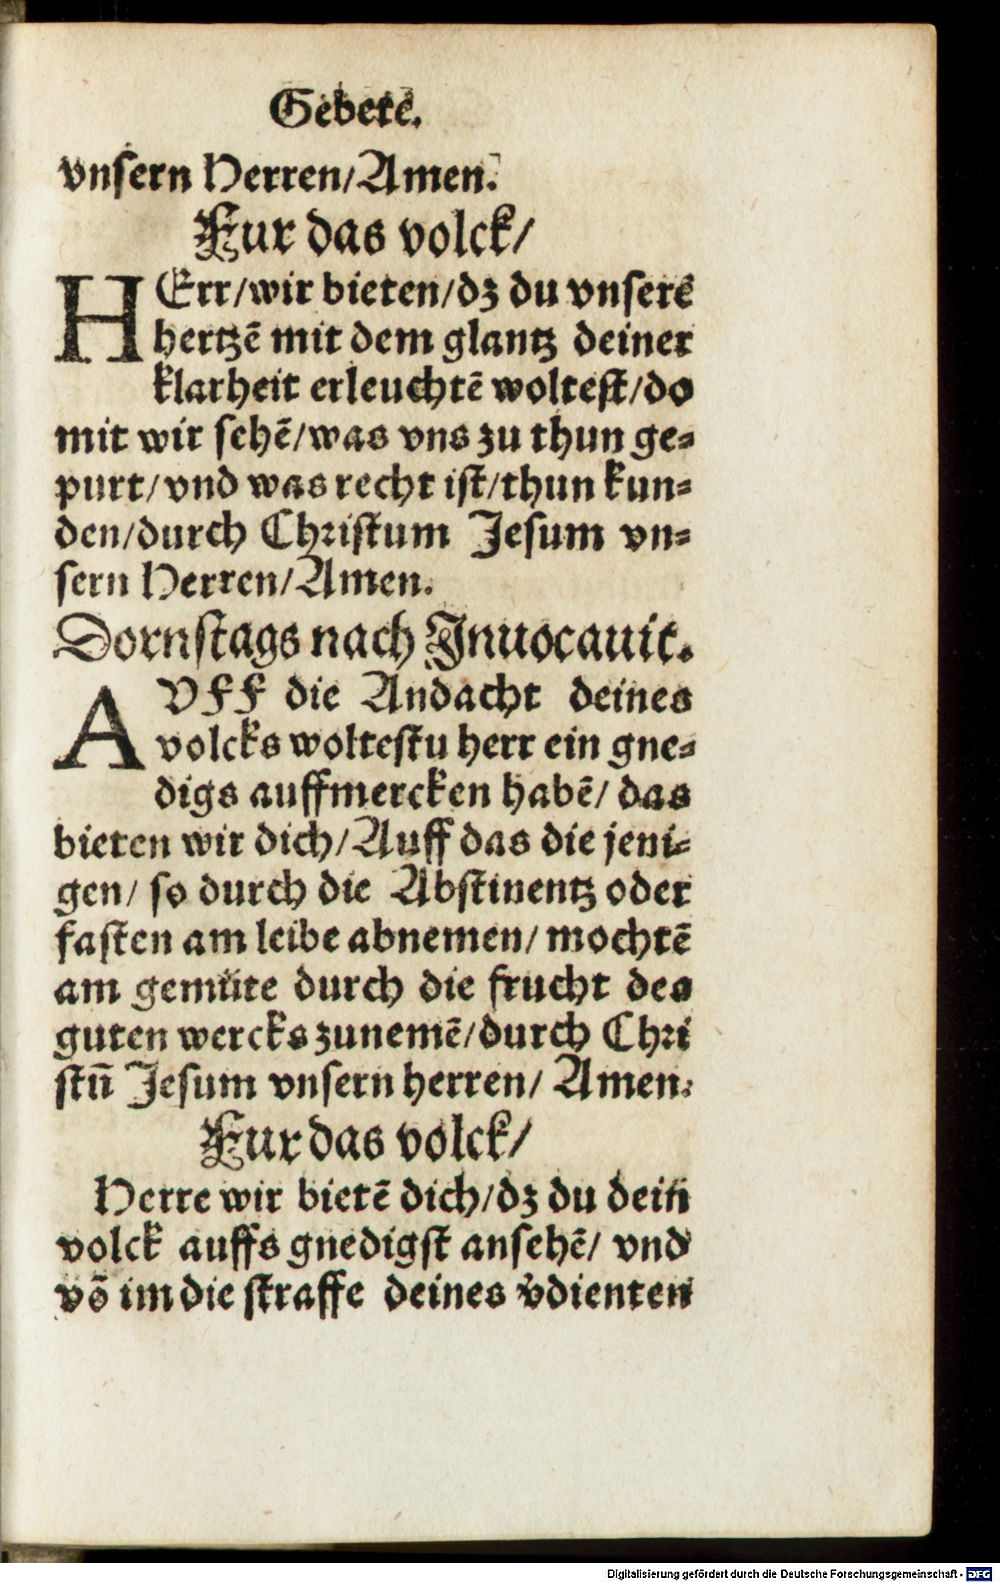 Gebete.
vnsern Herren/Amen.
Fur das volck/
HErr/wir bieten/dz du vnserē
hertzē mit dem glantz deiner
klarheit erleuchtē woltest/do
mit wir sehē/was vns zu thun ge-
purt/vnd was recht ist/thun kun-
den/durch Christum Jesum vn-
sern Herren/Amen.
Dornstags nach Jnuocauit.
AVFF die Andacht deines
volcks woltestu herr ein gne-
digs auffmercken habē/ das
bieten wir dich/Auff das die jeni-
gen/ so durch die Abstinentz oder
fasten am leibe abnemen/ mochtē
am gemüte durch die frucht des
guten wercks zunemē/durch Chri
stū Jesum vnsern herren/ Amen.
Fur das volck/
Herre wir bietē dich/dz du dein
volck auffs gnedigst ansehē/ vnd
vō im die straffe deines v̄dienten
Digitalisierung gefördert durch die Deutsche Forschungsgemeinschaft - DFG